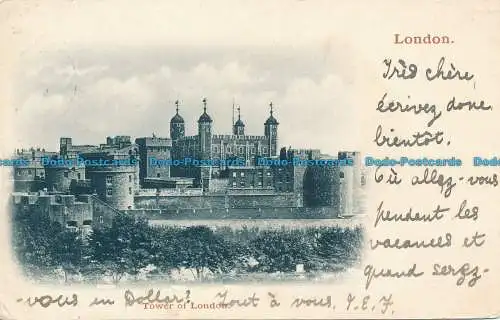 London.
Très chère
écrivez donc
bientôt.
Où allez-vous
pendant les
vacances et
quand serez-
-vous en Dollar? Tout à vous. Y.E.F.
Tower of London.
Dodo-Postcards Dodo-Postcards Dodo-Postcards Dodo-Postcards Dodo-Postcards